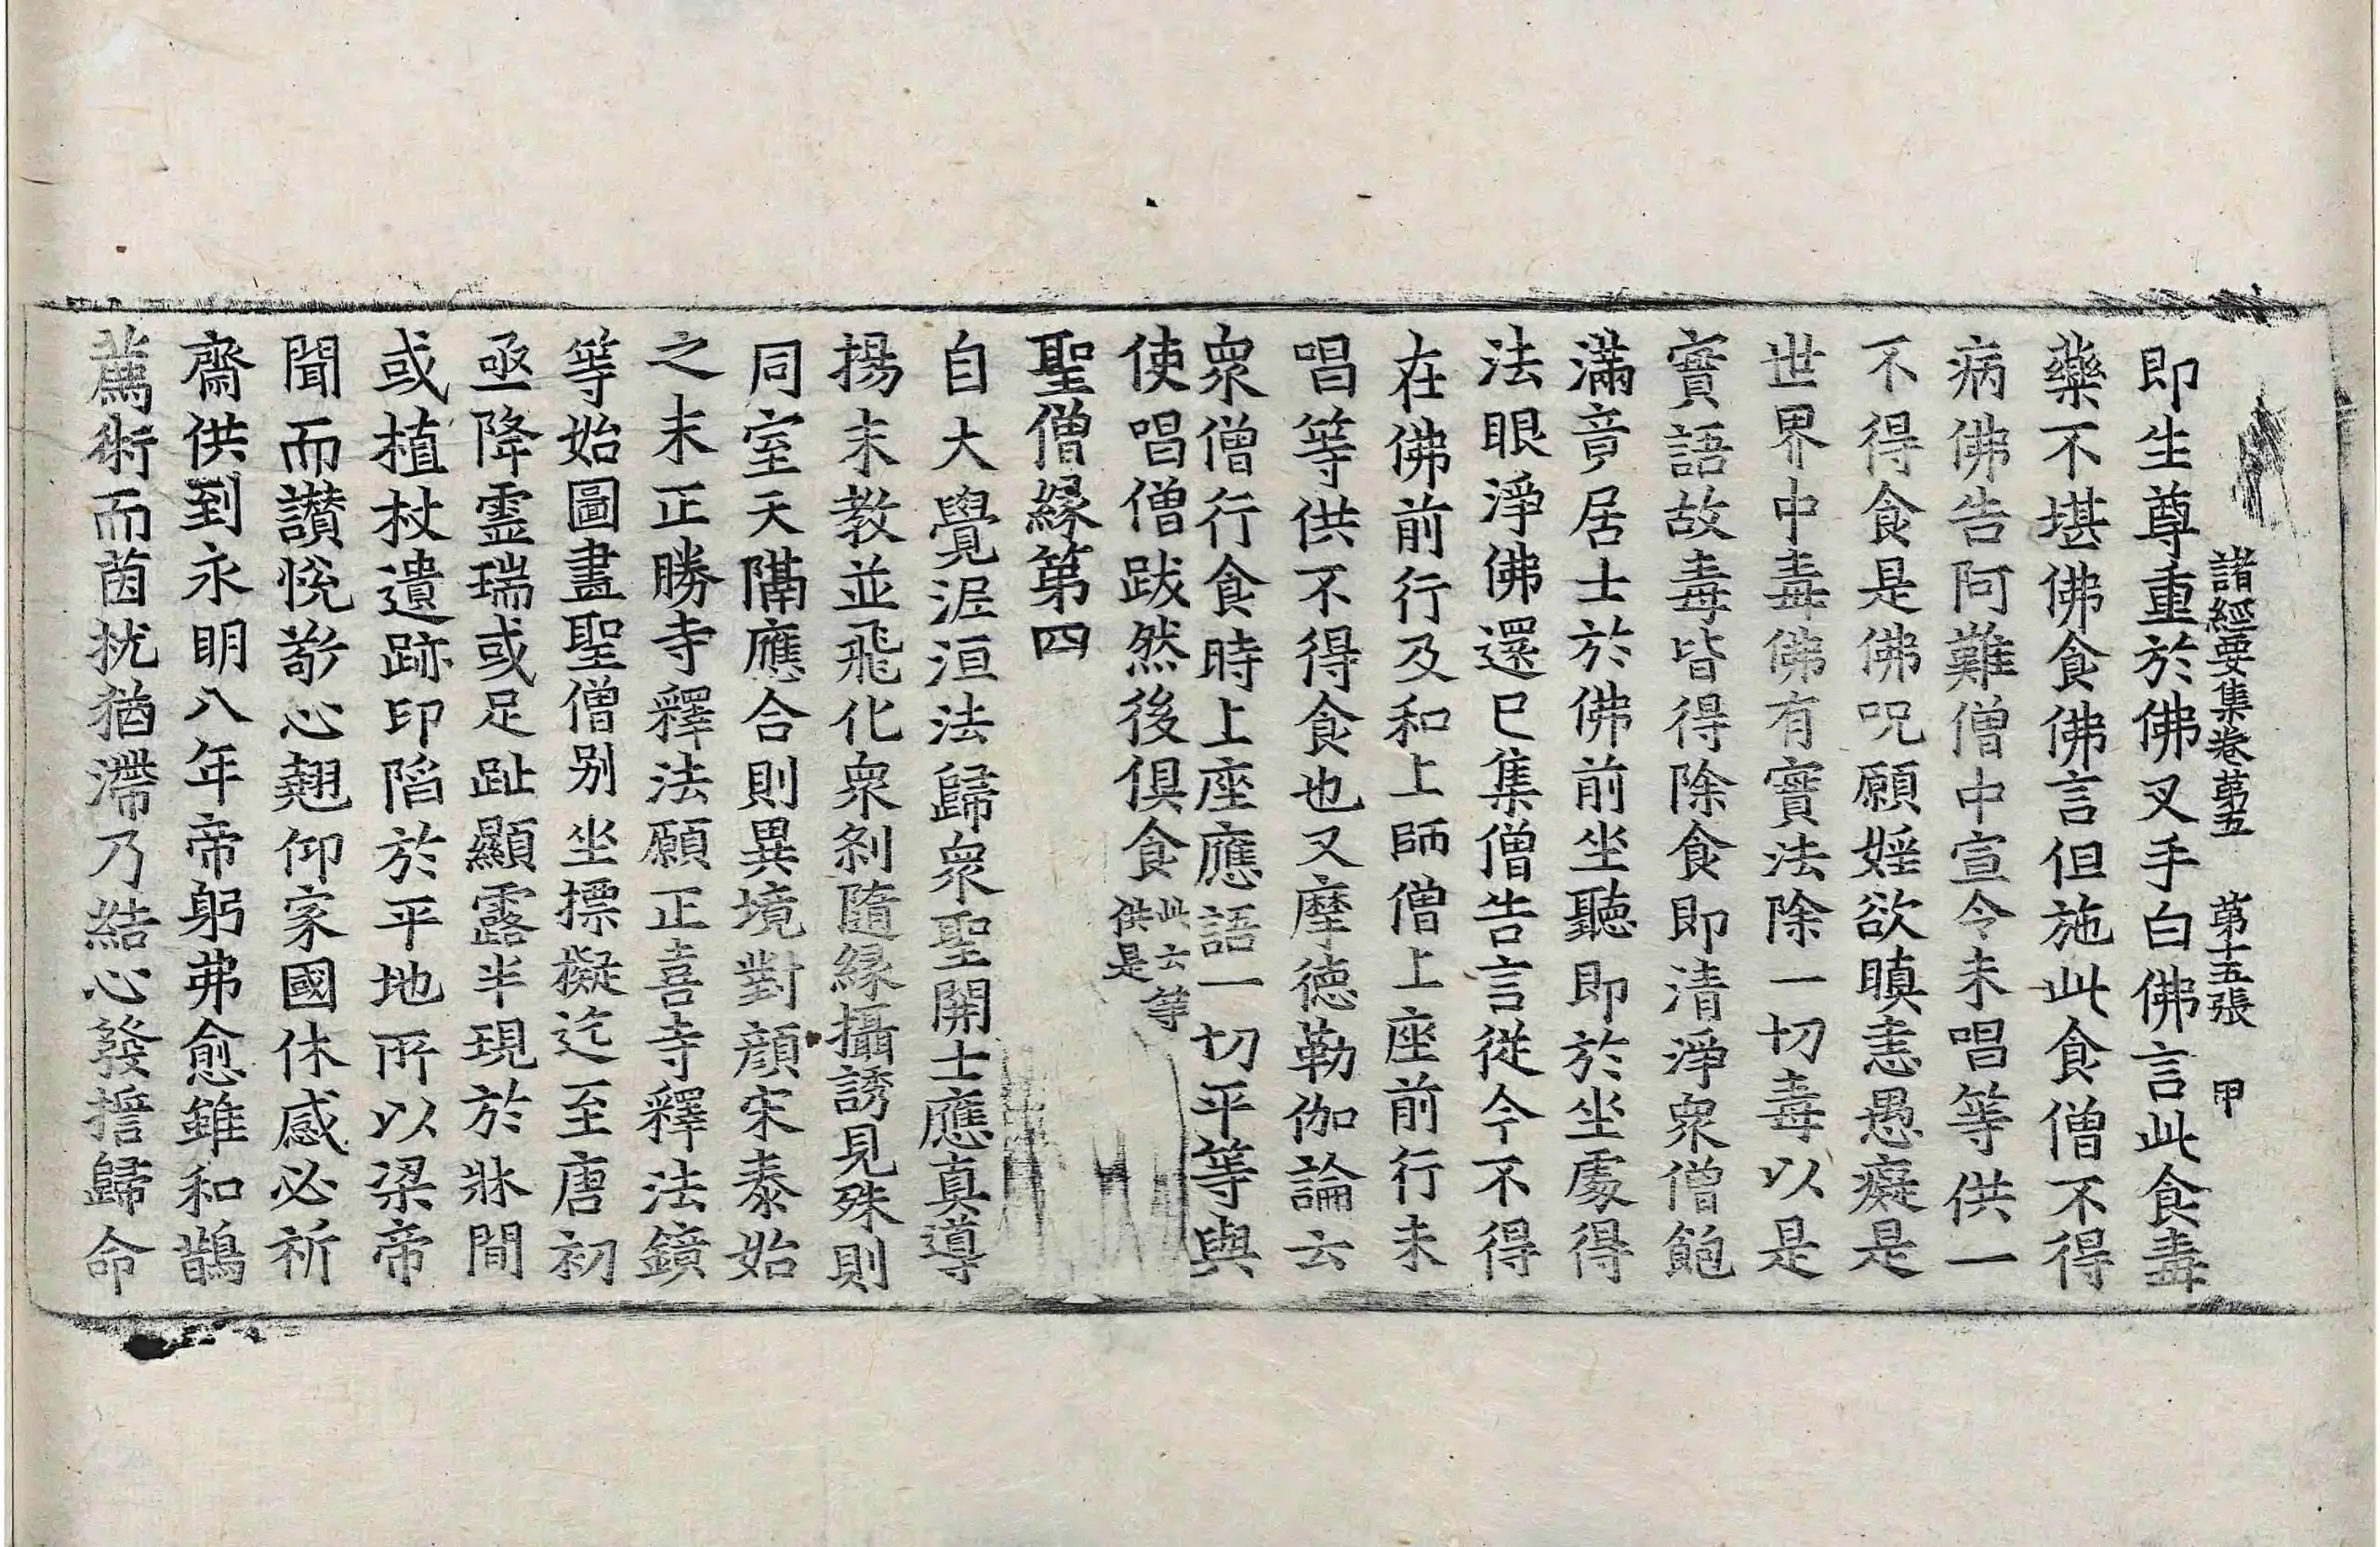 諸經要集卷第五 第十五張 甲
即生尊重於佛叉手白佛言此食毒
藥不堪佛食佛言但施此食僧不得
病佛告阿難僧中宣令未唱等供一
不得食是佛呪願婬欲瞋恚愚癡是
世界中毒佛有實法除一切毒以是
實語故毒皆得除食即清淨衆僧飽
滿竟居士於佛前坐聽即於坐處得
法眼淨佛還已集僧告言從今不得
在佛前行及和上師僧上座前行未
唱等供不得食也又摩德勒伽論云
衆僧行食時上座應語一切平等與
使唱僧跋然後俱食此云等供是
聖僧緣第四
自大覺泥洹法歸衆聖開士應真導
揚末教並飛化衆剎隨緣攝誘見殊則
同室天隔應合則異境對顏宋泰始
之末正勝寺釋法願正喜寺釋法鏡
等始圖畫聖僧別坐標擬迄至唐初
亟降靈瑞或足趾顯露半現於牀間
或植杖遺跡印陷於平地所以梁帝
聞而讚悅敬心翹仰家國休感必祈
齋供到永明八年帝躬弗愈雖和鵲
薦術而茵枕猶滯乃結心發誓歸命